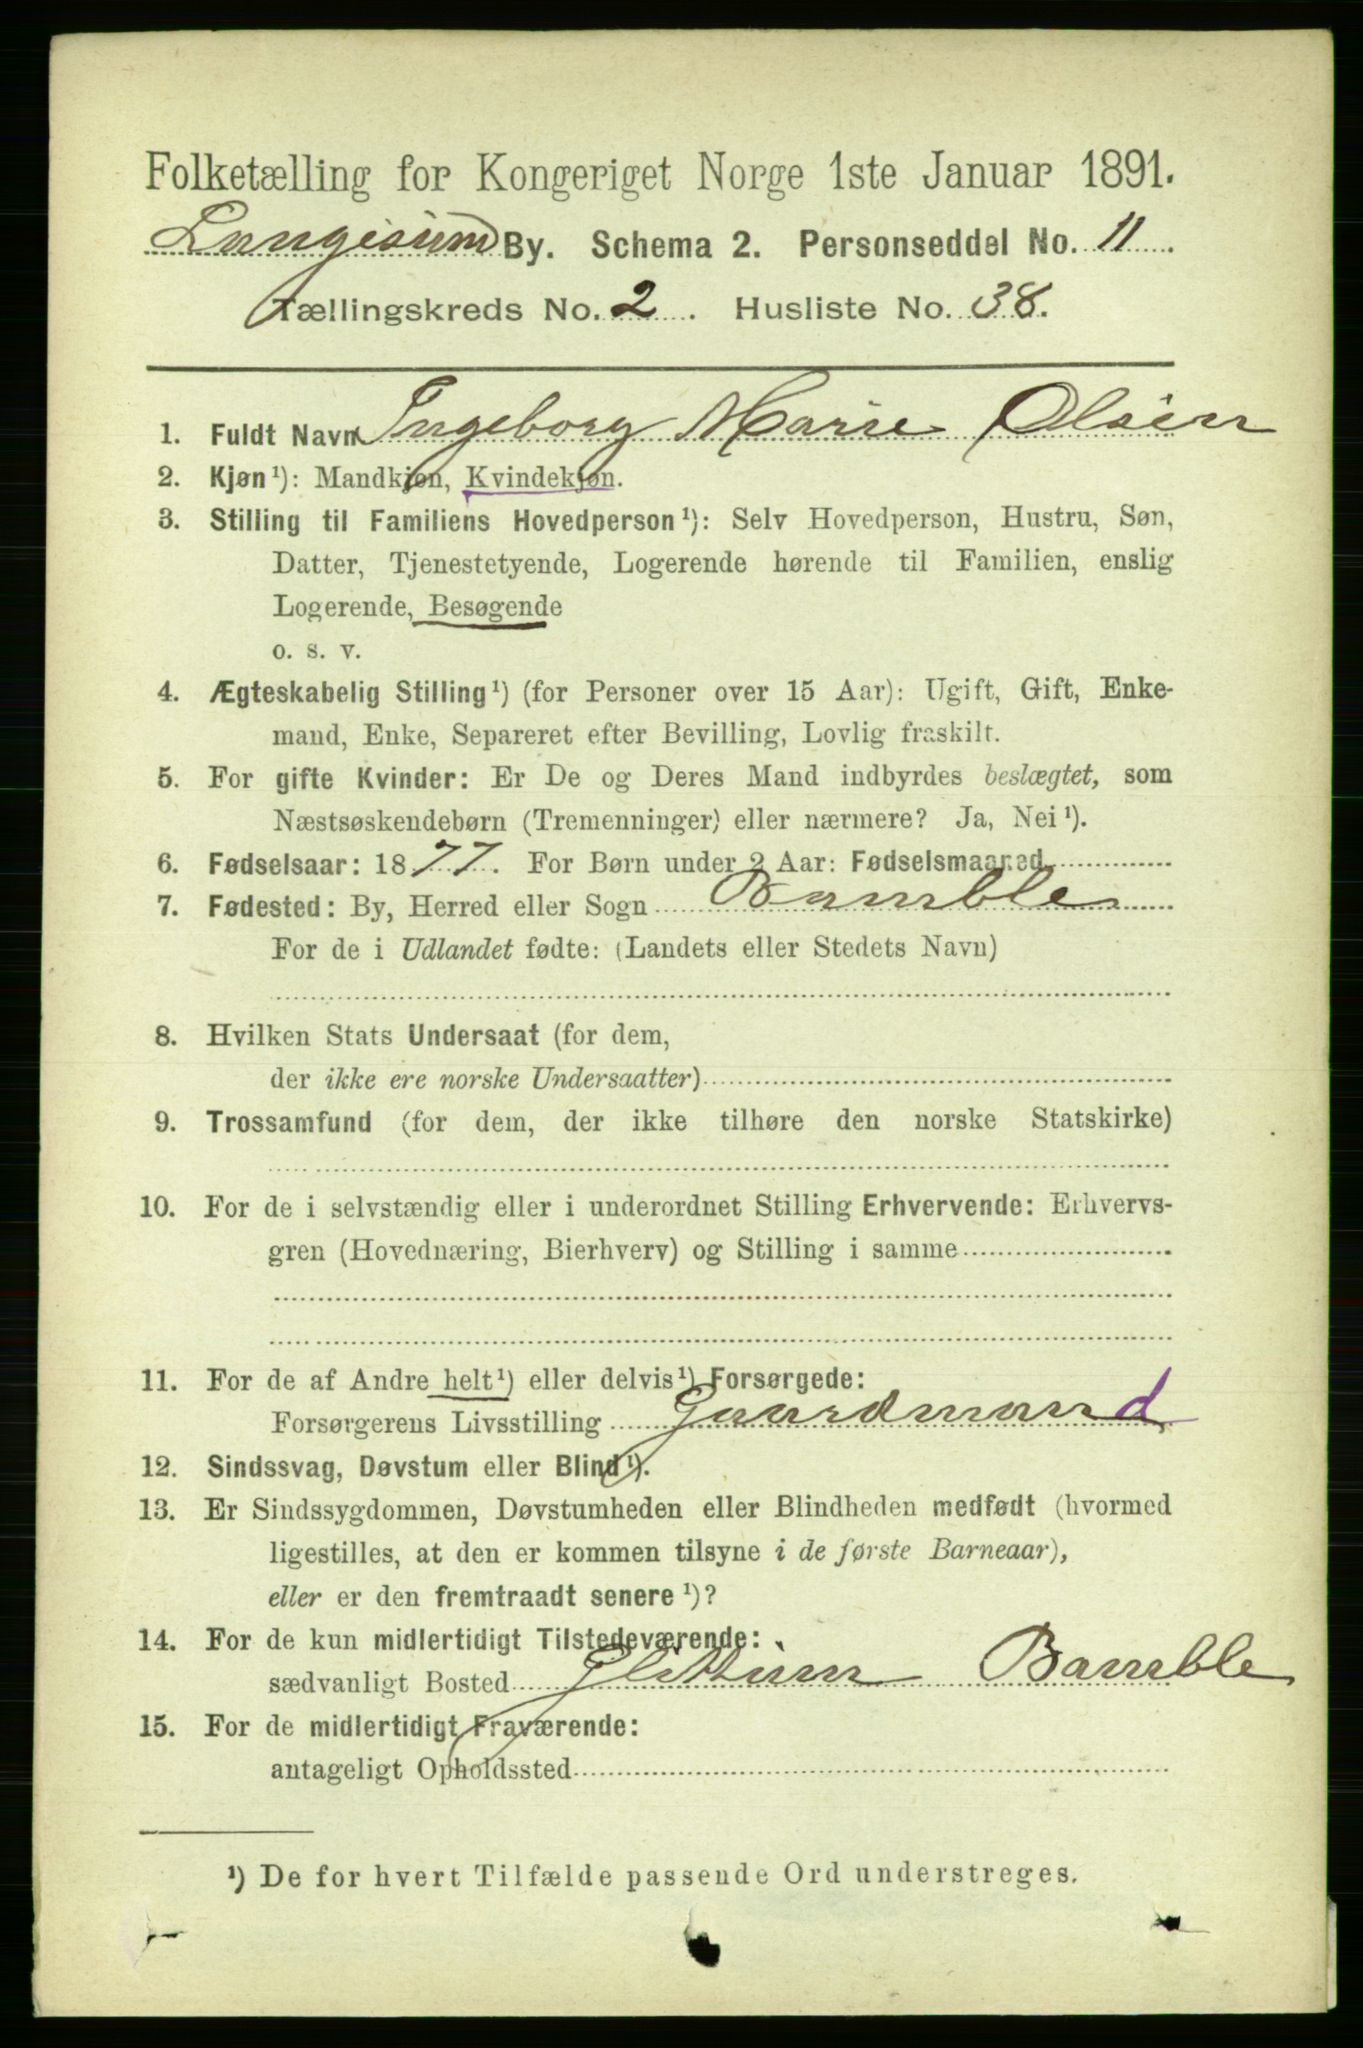 Folketælling for Kongeriget Norge 1ste Januar 1891.
Langesund By. Schema 2. Personseddel No. 11.
Tællingskreds No. 2. Husliste No. 38.
1. Fuldt Navn Ingeborg Marie Olsen
2. Kjøn¹): Mandkjøn, Kvindekjøn.
3. Stilling til Familiens Hovedperson¹): Selv Hovedperson, Hustru, Søn,
Datter, Tjenestetyende, Logerende hørende til Familien, enslig
Logerende, Besøgende
o. s. v.
4. Ægteskabelig Stilling¹) (for Personer over 15 Aar): Ugift, Gift, Enke-
mand, Enke, Separeret efter Bevilling, Lovlig fraskilt.
5. For gifte Kvinder: Er De og Deres Mand indbyrdes beslægtet, som
Næstsøskendebørn (Tremenninger) eller nærmere? Ja, Nei¹).
6. Fødselsaar: 1877. For Børn under 2 Aar: Fødselsmaaned
7. Fødested: By, Herred eller Sogn Bamble
For de i Udlandet fødte: (Landets eller Stedets Navn)
8. Hvilken Stats Undersaat (for dem,
der ikke ere norske Undersaatter)
9. Trossamfund (for dem, der ikke tilhøre den norske Statskirke)
10. For de i selvstændig eller i underordnet Stilling Erhvervende: Erhvervs-
gren (Hovednæring, Bierhverv) og Stilling i samme
11. For de af Andre helt¹) eller delvis¹) Forsørgede:
Forsørgerens Livsstilling Gaardmand
12. Sindssvag, Døvstum eller Blind¹).
13. Er Sindssygdommen, Døvstumheden eller Blindheden medfødt (hvormed
ligestilles, at den er kommen tilsyne i de første Barneaar),
eller er den fremtraadt senere¹)?
14. For de kun midlertidigt Tilstedeværende:
sædvanligt Bosted Bamble
15. For de midlertidigt Fraværende:
antageligt Opholdssted
¹) De for hvert Tilfælde passende Ord understreges.